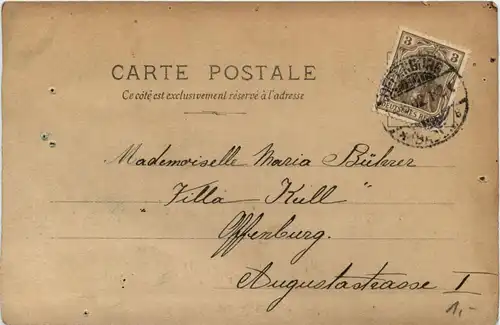 CARTE POSTALE
Ce côté est exclusivement réservé à l'adresse
3
DEUTSCHES
Mademoiselle Maria Bührer
Villa Kull"
Offenburg.
Augustastrasse I
1.-